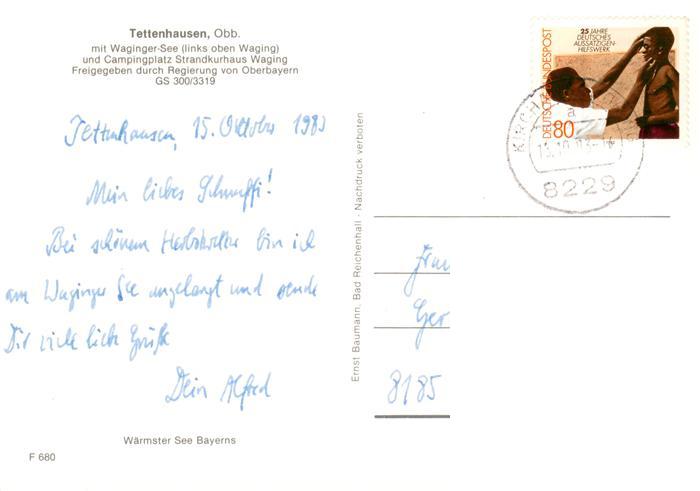 Tettenhausen, Obb.
mit Waginger-See (links oben Waging)
und Campingplatz Strandkurhaus Waging
Freigegeben durch Regierung von Oberbayern
GS 300/3319
Tettenhausen, 15. Oktober 1983
Mein liebes Schnuffi!
Bei schönem Herbstwetter bin ich
am Waginger See angelangt und sende
Dir viele liebe Grüße
Dein Alfred
Wärmster See Bayerns
F 680
Ernst Baumann, Bad Reichenhall - Nachdruck verboten
25 JAHRE
DEUTSCHES
AUSSÄTZIGEN-
HILFSWERK
DEUTSCHE BUNDESPOST
80
KIRCH
a
8229
Frau
Ger
8185